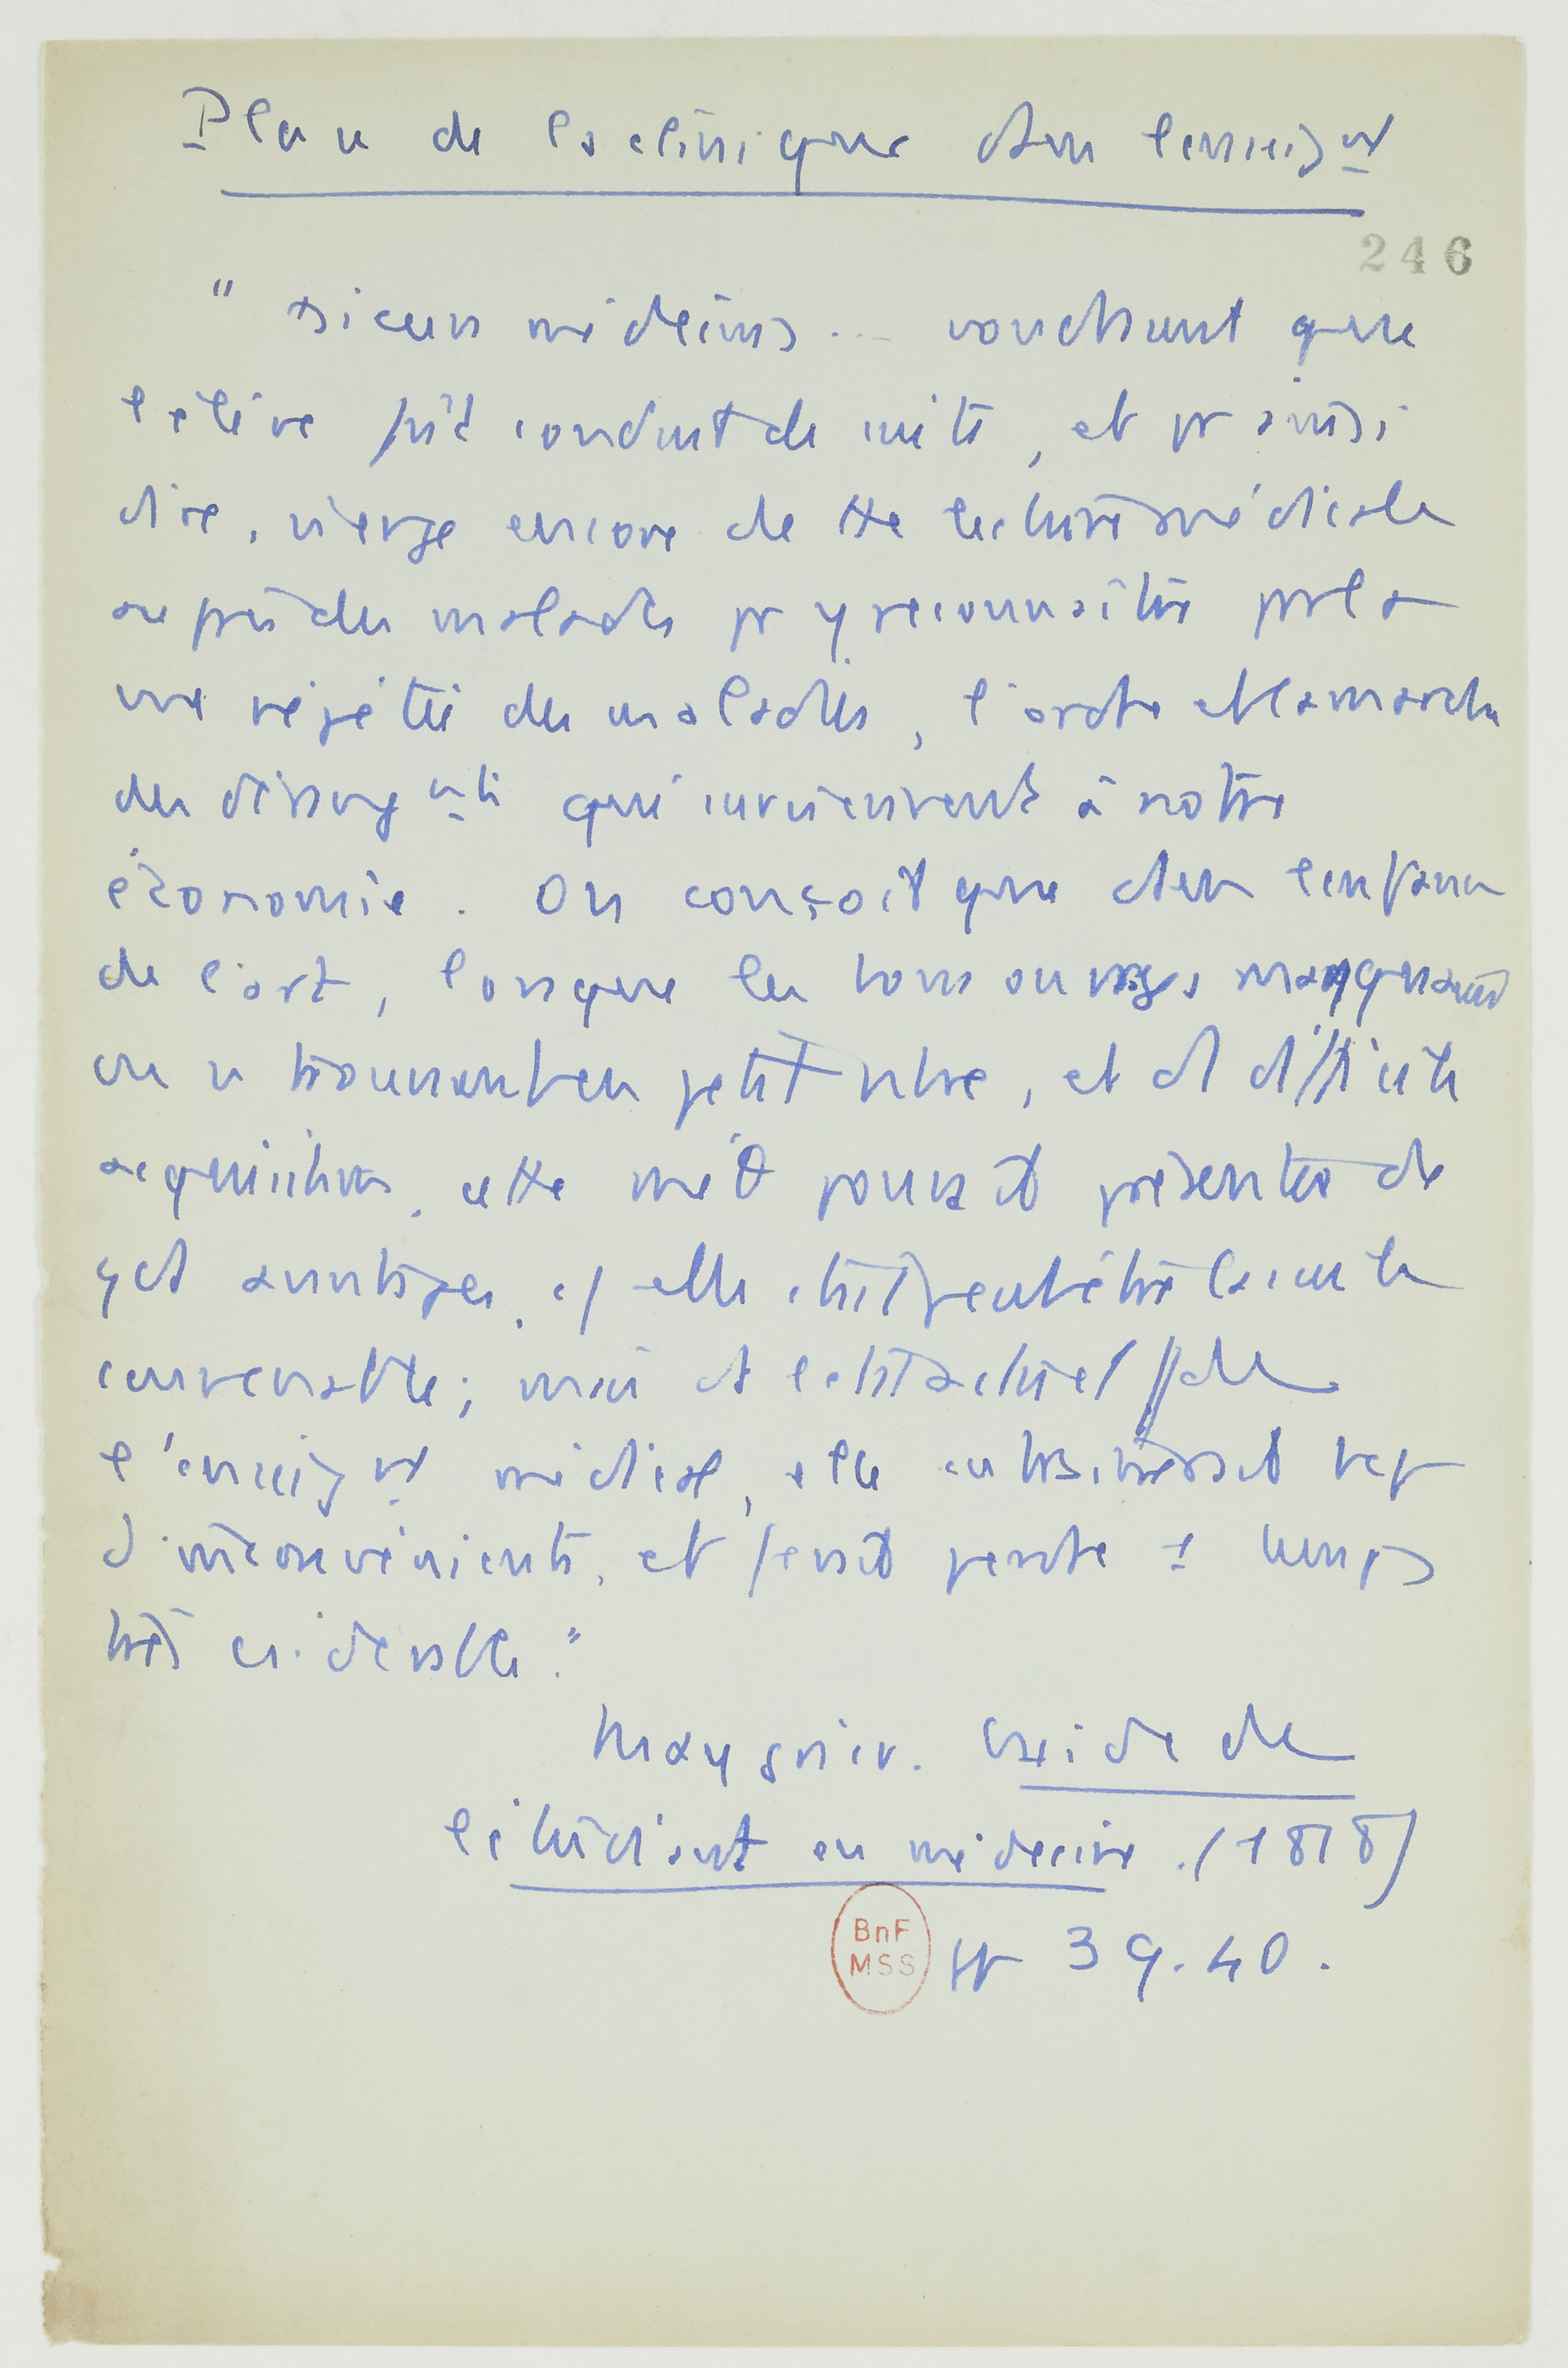 Place de la clinique dans l'enseig nt
246
" Plusieurs médecins ... voudraient que
l'élève fût conduit de suite, et pr ainsi
dire, vierge encore de tte lecture médicale
auprès des malades pr y reconnaître par la
vue répétée des malades, l'ordre et la marche
des dérang nts qui surviennent à notre
économie. On conçoit que dans l'enfance
de l'art, lorsque les bons ouvrages manquaient
ou se trouvaient en petit nbre, et d difficile
acquisition, cette mé pouvait présenter de
gds avantages, et elle était peut-être la seule
convenable; mais ds l'état actuel de
l'enseig nt médical, elle entraînerait trop
d'inconvénients, et ferait perdre temps
très considérable."
Maygrier. Guide de
l'étudiant en médecine. (1818)
BnF
MSS
pp 39.40.